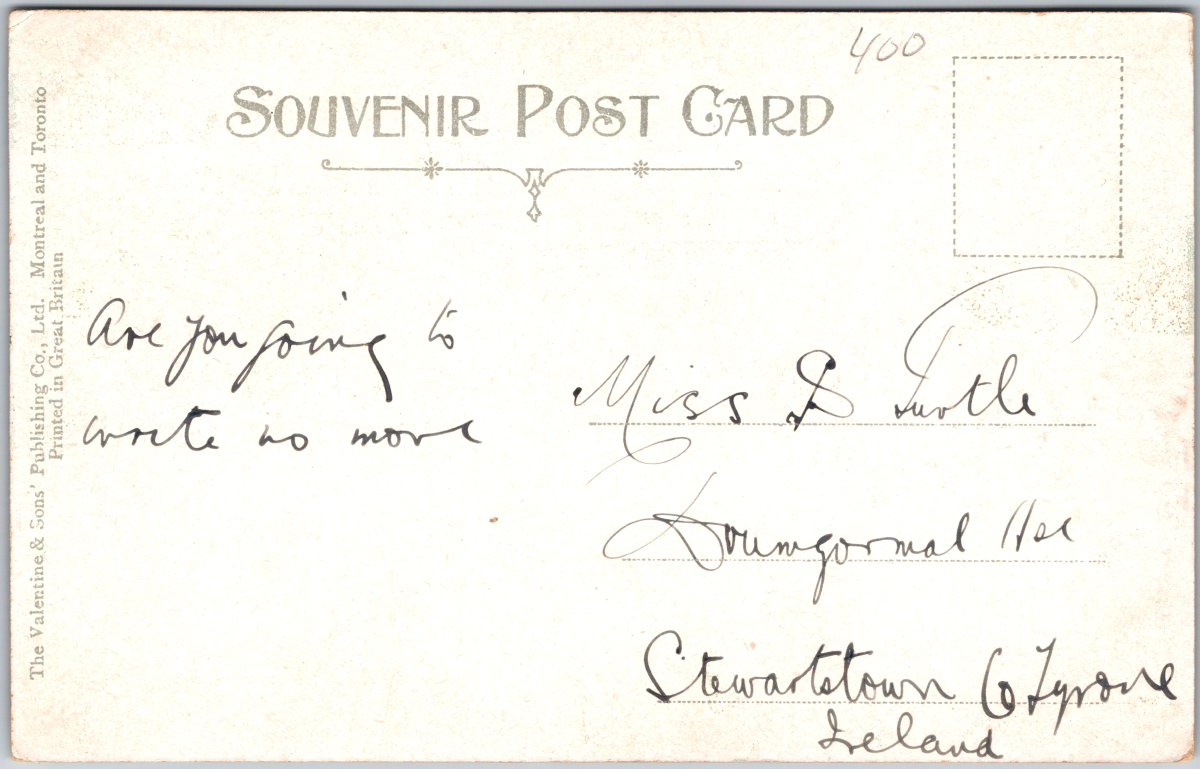 400
SOUVENIR POST CARD
The Valentine & Sons' Publishing Co., Ltd. Montreal and Toronto
Printed in Great Britain
Are you going to
write no more
Miss D Turtle
Drumgormal Hse
Stewartstown Co Tyrone
Ireland